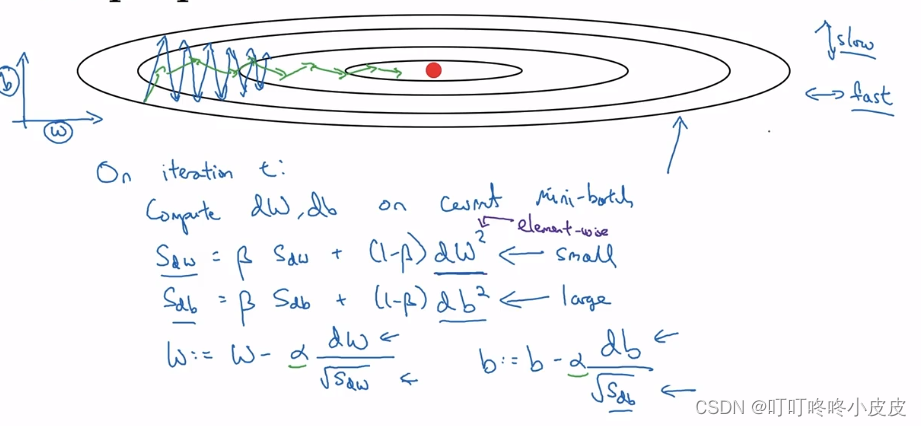 slow
b
fast
w
On iteration t:
Compute dW, db on current mini-batch
element-wise
Sdw = β Sdw + (1-β) dW² ← small
Sdb = β Sdb + (1-β) db² ← large
W := W - α dW/√Sdw b := b - α db/√Sdb
CSDN @叮叮咚咚小皮皮